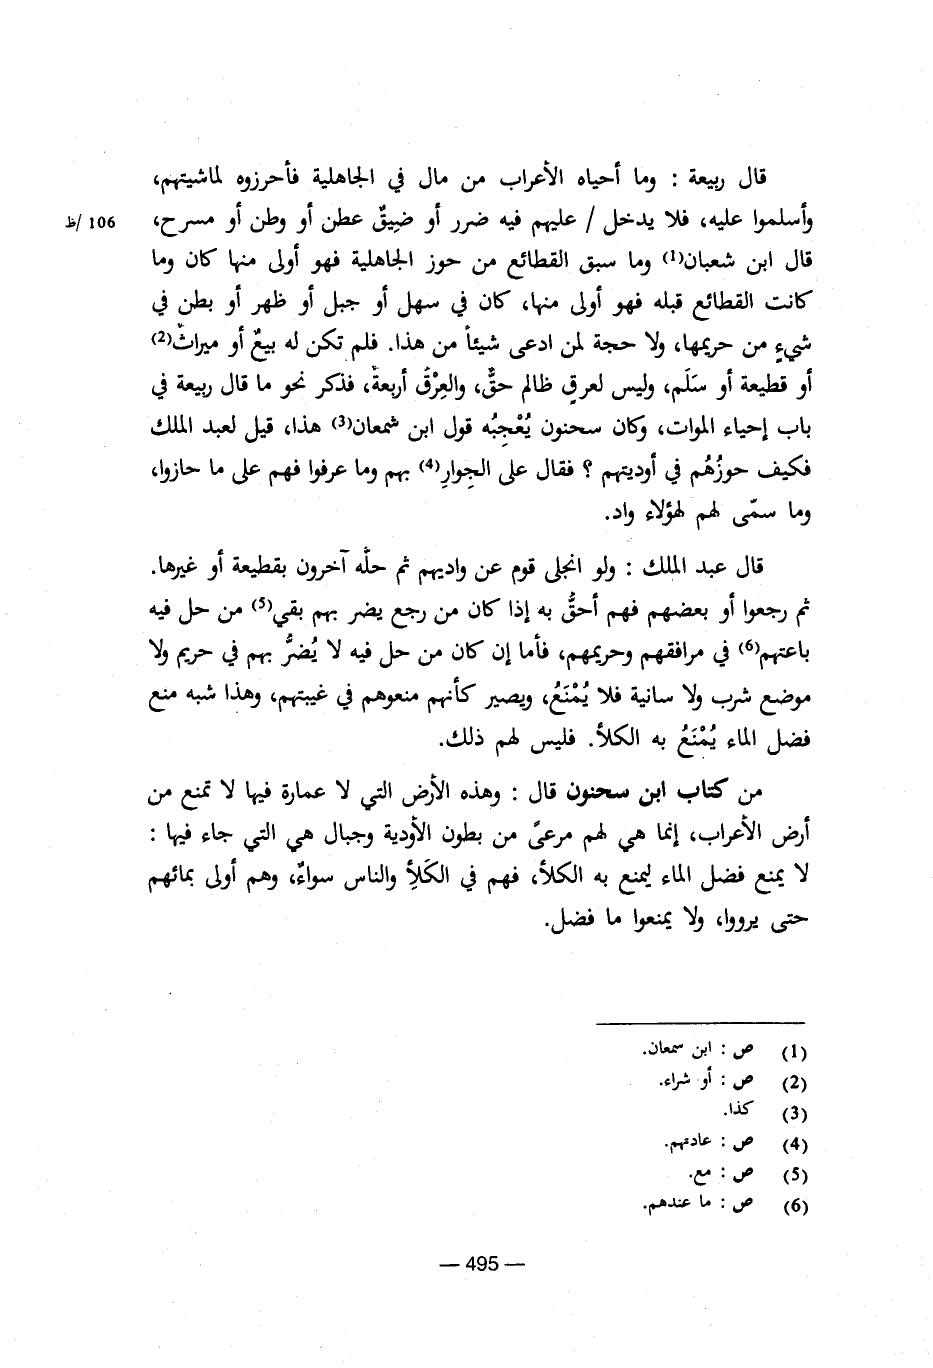 قال ربيعة : وما أحياه الأعراب من مال في الجاهلية فأحرزوه لماشيتهم،
وأسلموا عليه، فلا يدخل / عليهم فيه ضرر أو ضيقٌ عطن أو وطن أو مسرح،
106 /ظ
قال ابن شعبان(1) وما سبق القطائع من حوز الجاهلية فهو أولى منها كان وما
كانت القطائع قبله فهو أولى منها، كان في سهل أو جبل أو ظهر أو بطن في
شيءٍ من حريمها، ولا حجة لمن ادعى شيئاً من هذا. فلم تكن له بيعٌ أو ميراثٌ(2)
أو قطيعة أو سَلَم، وليس لعرقٍ ظالم حقٌّ، والعِرْقُ أربعةٌ، فذكر نحو ما قال ربيعة في
باب إحياء الموات، وكان سحنون يُعْجِبُه قول ابن شمعان(3) هذا، قيل لعبد الملك
فكيف حوزُهُم في أوديتهم ؟ فقال على الجوارِ(4) بهم وما عرفوا فهم على ما حازوا،
وما سمّى لهم لهؤلاء واد.
قال عبد الملك : ولو انجلى قوم عن واديهم ثم حلَّه آخرون بقطيعة أو غيرها.
ثم رجعوا أو بعضهم فهم أحقُّ به إذا كان من رجع يضر بهم بقي(5) من حل فيه
باعتهم(6) في مرافقهم وحريمهم، فأما إن كان من حل فيه لا يُضرُّ بهم في حريم ولا
موضع شرب ولا سانية فلا يُمْنَعُ، ويصير كأنهم منعوهم في غيبتهم، وهذا شبه منع
فضل الماء يُمْنَعُ به الكلأ. فليس لهم ذلك.
من كتاب ابن سحنون قال : وهذه الأرض التي لا عمارة فيها لا تمنع من
أرض الأعراب، إنما هي لهم مرعىً من بطون الأودية وجبال هي التي جاء فيها :
لا يمنع فضل الماء ليمنع به الكلأ، فهم في الكَلأِ والناس سواءٌ، وهم أولى بمائهم
حتى يرووا، ولا يمنعوا ما فضل.
(1) ص : ابن سمعان.
(2) ص : أو شراء.
(3) كذا.
(4) ص : عادتهم.
(5) ص : مع.
(6) ص : ما عندهم.
— 495 —